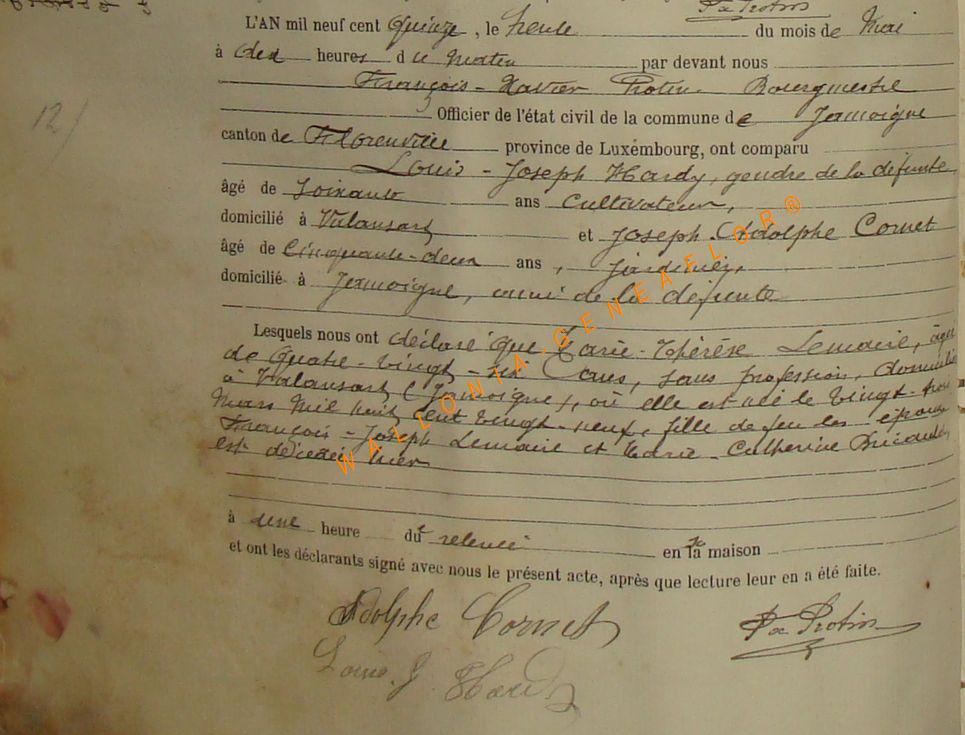 Fx Protin
L'AN mil neuf cent quinze, le trente du mois de Mai
à dix heures du matin par devant nous
François - Xavier Protin Bourgmestre
Officier de l'état civil de la commune de Jamoigne
12/
canton de Florenville province de Luxembourg, ont comparu
Louis - Joseph Hardy, gendre de la défunte
âgé de Soixante ans Cultivateur,
domicilié à Valansart et Joseph - Adolphe Cornet
âgé de Cinquante-deux ans, Jardinier,
domicilié à Jamoigne, de la défunte
Lesquels nous ont déclaré que Marie-Thérèse Lemaire, âgée
de quatre-vingt-six ans, sans profession, domiciliée
à Valansart (Jamoigne), où elle est née le vingt-trois
Mars Mil huit cent vingt-neuf, fille de feu les époux
François - Joseph Lemaire et Marie - Catherine
est décédée hier
à une heure du en sa maison
et ont les déclarants signé avec nous le présent acte, après que lecture leur en a été faite.
Adolphe Cornet
Fx Protin
Louis J. Hardy
WALLONIA-GENEAFLOR®